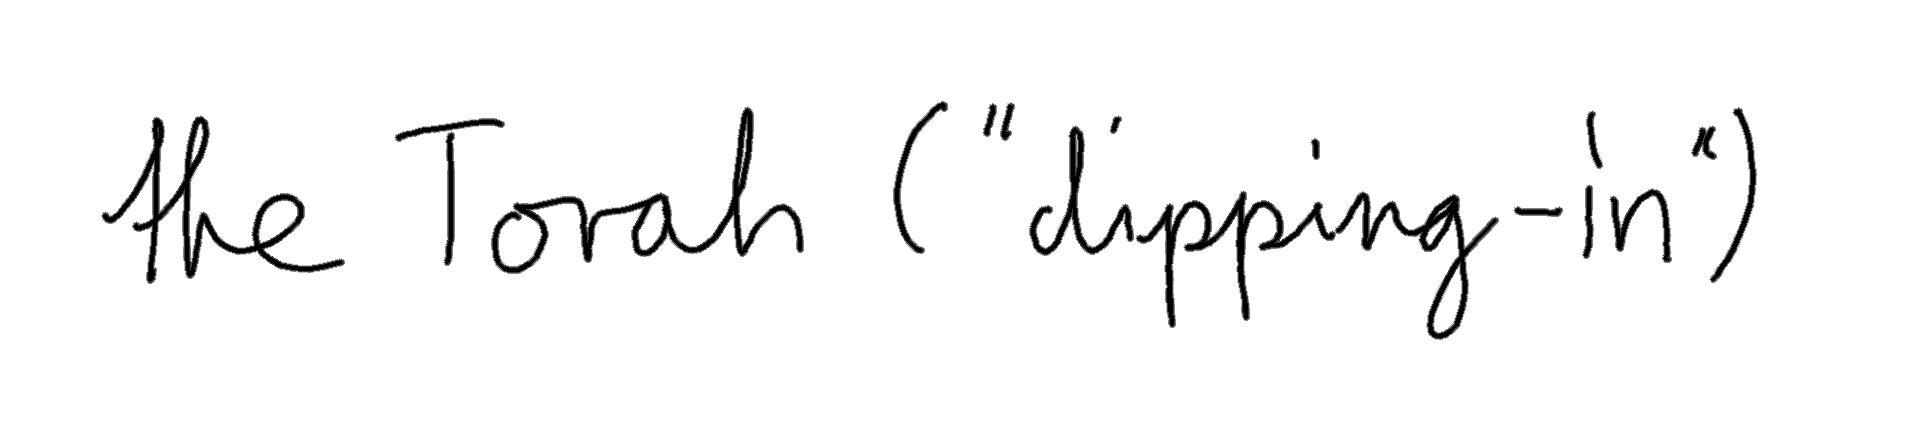 the Torah ("dipping-in")